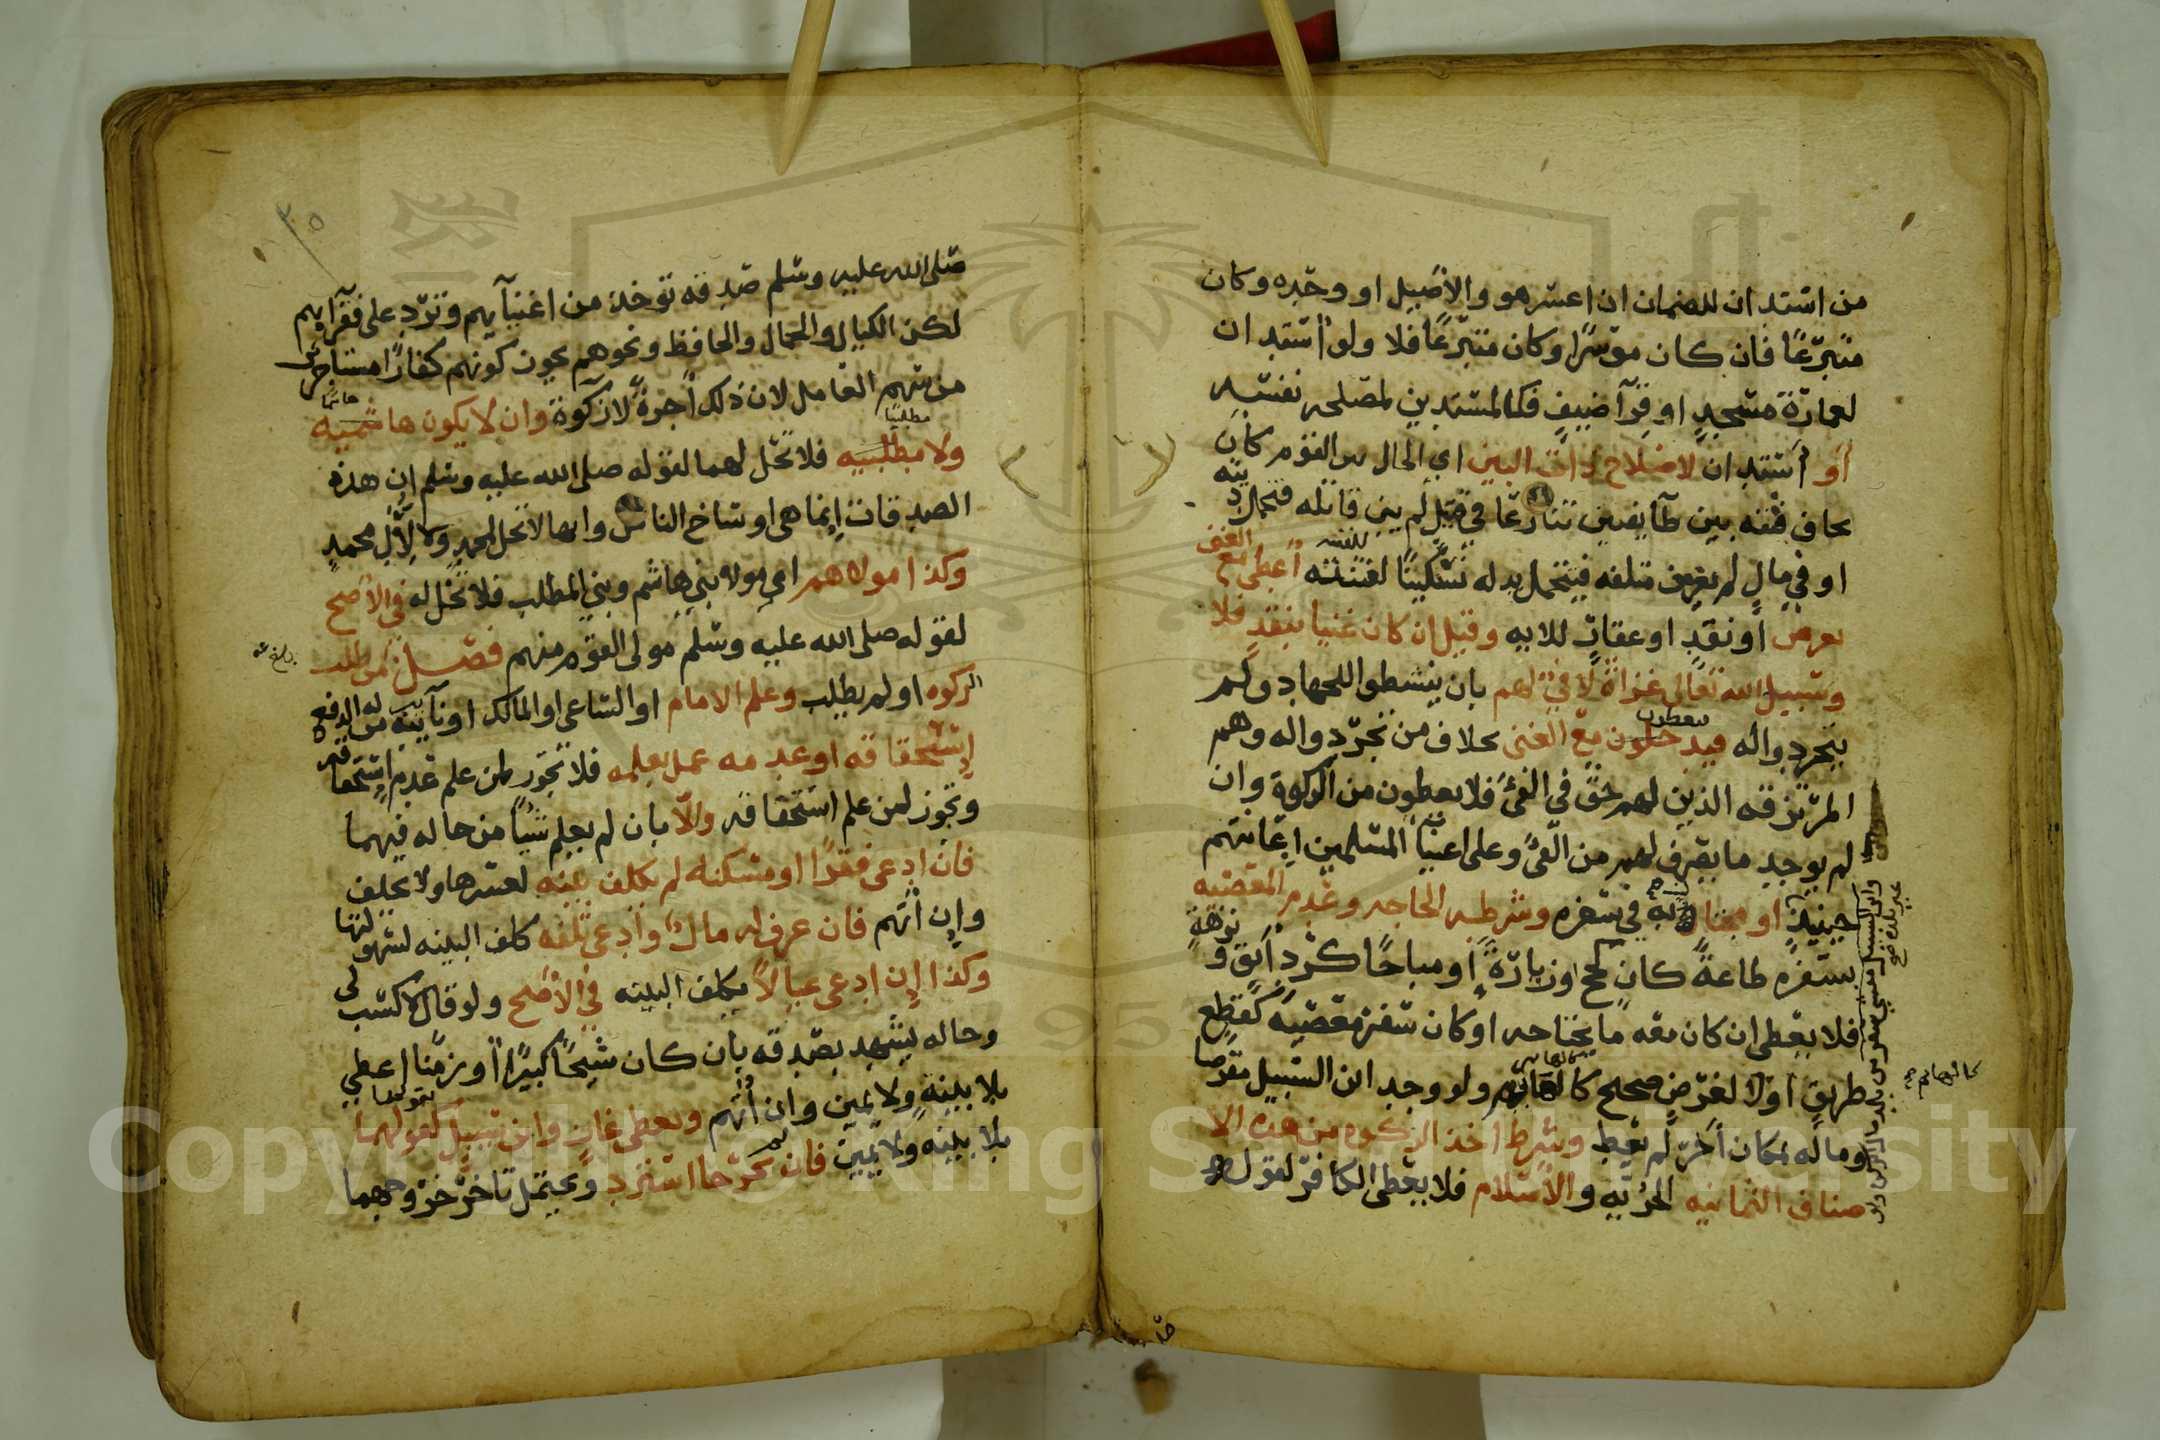 من استدان للضمان ان اعسر هو والاصيل او وحده وكان
متبرعًا فان كان موسرًا او كان متبرعًا فلا ولو استدان
لعمارة مسجدٍ او قرآ ضيفٍ فكالمستدين لمصلحه نفسه
أو استدان لاصلاح ذات البين اي الحال بين القوم كان
يخاف فتنه بين طآيفتين تنازعا في قتيل لم يبن قاتله فتحمل ديته
او في مالٍ لم يعرف متلفه فيتحمل بدله تسكينًا للفتنه أعطى مع الغنى
بعرض أو نقدٍ او عقارٍ للايه وقيل ان كان غنيا بنقدٍ فلا
وسبيل الله تعالى غزاةٌ لا فيْ لهم بان ينشطوا للجهاد ولم
يتجردوا له فيعطون مع الغنى بخلاف من تجردوا له وهم
المرتزقه الذين لهم حق في الفئ فلا يعطون من الزكوة وان
لم يوجد ما يصرف لهم من الفئ وعلى اغنيآ المسلمين اعانتهم
حينيذٍ او مجتاز به في سفره وشرطه الحاجه وعدم المعصيه
بسفره طاعةً كان كحج اوزيارةً أو مباحًا كردِ أبق و نزهةٍ
فلا يعطى ان كان معه ما يحتاجه او كان سفره معصيه كقطع
طريقٍ اولا لغرضٍ صحيح كالهايم ولو وجد ابن السبيل مقرضا
وماله بمكان آخر لم يعط وشرط اخذ الزكوه من هذه الا
صناف الثمانيه الحريه والاسلام فلا يعطى الكافر لقوله
كالهايم صح
٣٥
صلى الله عليه وسلم صدقه توخذ من اغنيآيهم وترد على فقرآيهم
لكن الكيال والحمال والحافظ ونحوهم يجوز كونهم كفارًا مستاجرين
من سهم العامل لان ذلك أجرةً لا زكوة وان لا يكون هاشميه هاشميا
ولا مطلبيه مطلبيا فلا تحل لهما لقوله صلى الله عليه وسلم ان هذه
الصدقات إنما هى اوساخ الناس وانها لا تحل لمحمدٍ ولا لآل محمدٍ
وكذا مولاهم اي مولى بني هاشم وبني المطلب فلا تحل له في الأصح
لقوله صلى الله عليه وسلم مولى القوم منهم فصل من طلب
الزكوه او لم يطلب وعلم الامام او الساعى او المالك او نآيبه من له الدفع
إستحقاقه او عدمه عمل بعلمه فلا تجوز لمن علم عدم استحقاقه
وتجوز لمن علم استحقاقه ولآ بان لم يعلم شيًا من حاله فيهما
فان ادعى فقرًا او مسكنه لم يكلف بينه لعسرها ولا يحلف
وإن أتهم فان عرف له مال وادعى تلفه كلف البينه لسهولتها
وكذا إن ادعى عيالًا يكلف البينه في الأصح ولو قال لا كسب لى
وحاله يشهد بصدقه بان كان شيخًا كبيرًا أو زمنًا اعطي
بلا بينةٍ ولا يمين وان أتهم ويعطى غازٍ وابن سبيل لقولهما بقولهما
بلا بينهٍ ولا يمين فان لم يخرجا استرد ويحتمل تاخر خروجهما